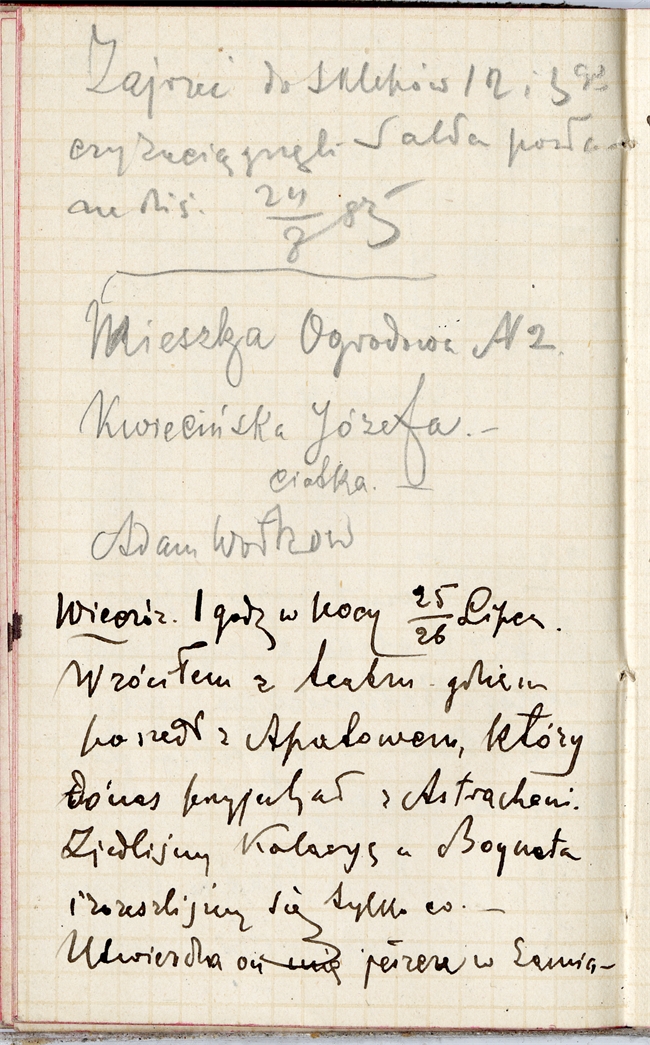 Zajrzeć do sklepów 12 i 3go
czy zaciągnęli Salda podane
na dziś. 24/8 85
Mieszka Ogrodowa N 2.
Kwiecińska Józefa. –
ciotka. –
Adam Wołkow
Wieczór. 1 godz w nocy 25/26 Lipca.
Wróciłem z teatru gdziem
poszedł z Apatowem, który
do nas przyjechał z Astrachani.
Zjedliśmy Kolacyę u Bogneta
i rozeszliśmy się tylko co. –
Utwierdza on mię jeszcze w Zamia–